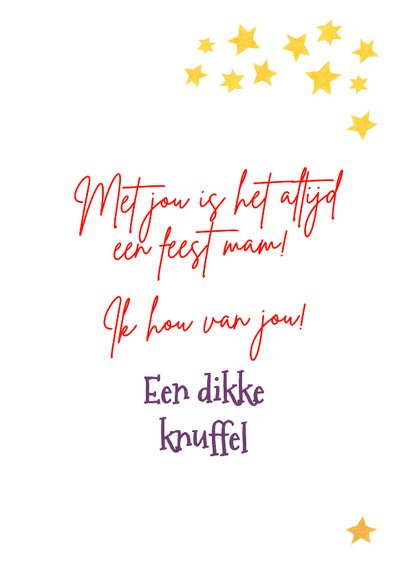 Met jou is het altijd
een feest mam!
Ik hou van jou!
Een dikke
knuffel